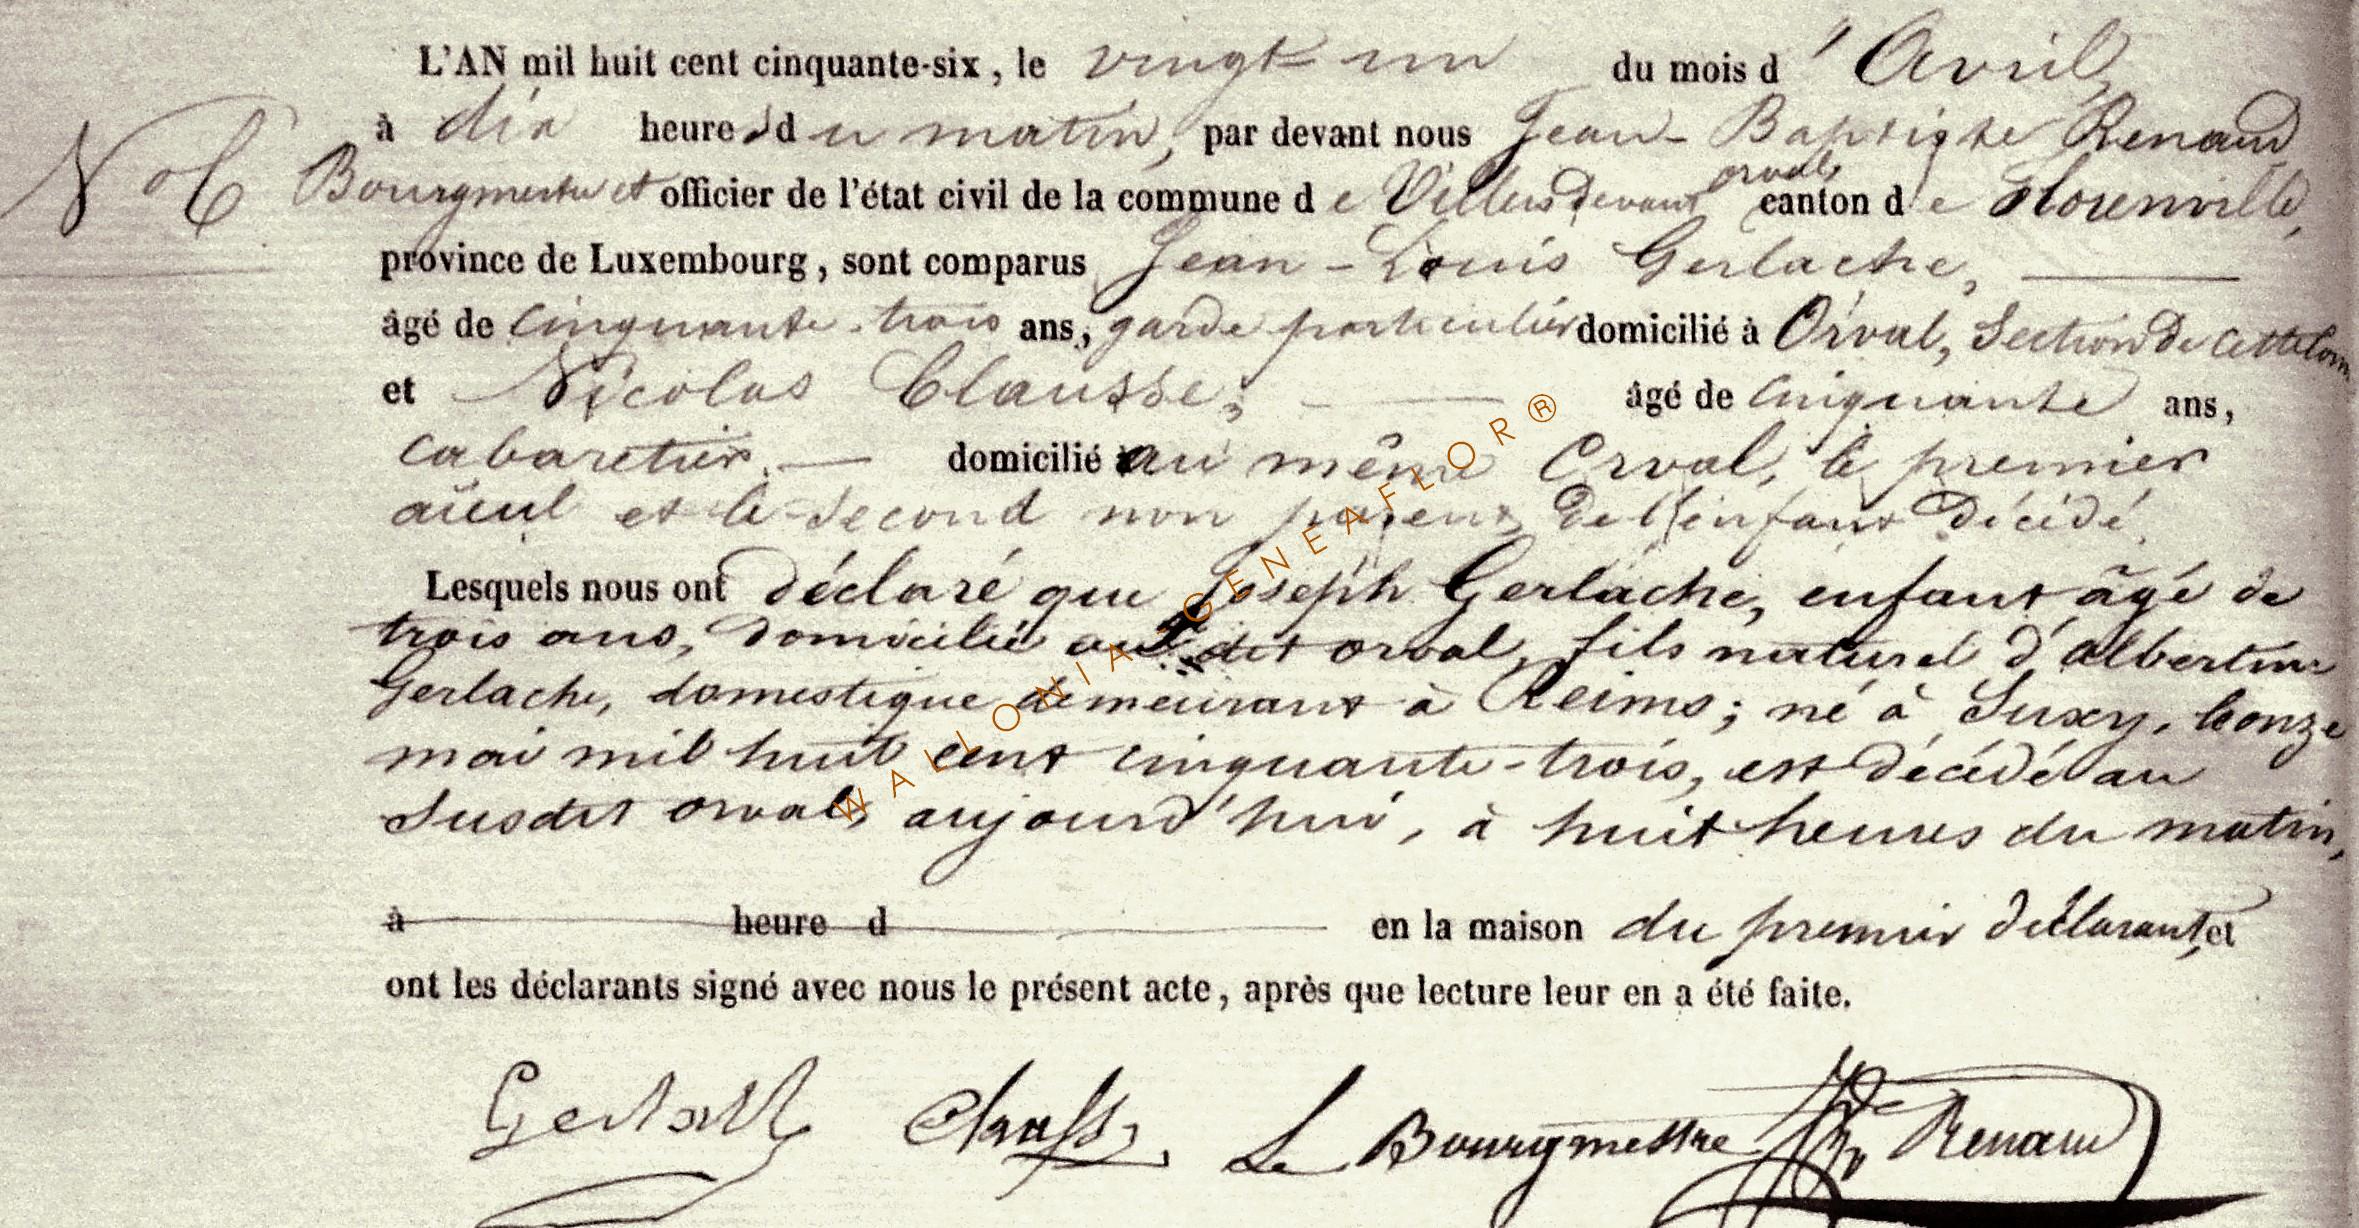 L'AN mil huit cent cinquante-six, le vingt un du mois d'Avril,
à dix heures du matin, par devant nous Jean-Baptiste Renaud
No 6
Bourgmestre et officier de l'état civil de la commune de Villers devant orval, canton de Florenville,
province de Luxembourg, sont comparus Jean-Louis Gerlache,
âgé de cinquante-trois ans, garde particulier domicilié à Orval, Section de cette Com
et Nicolas Clausse, âgé de cinquante ans,
cabaretier domicilié au même Orval, le premier
aïeul et le second non parent de l'enfant décédé.
Lesquels nous ont déclaré que Joseph Gerlache, enfant âgé de
trois ans, domicilié au dit orval, fils naturel d'albertine
Gerlache, domestique demeurant à Reims; né à Suxy, le onze
mai mil huit cent cinquante-trois, est décédé au
susdit orval, aujourd'hui, à huit heures du matin,
à heure d en la maison du premier déclarant, et
ont les déclarants signé avec nous le présent acte, après que lecture leur en a été faite.
Gerlache Clausse Le Bourgmestre Renaud
WALLONIA-GENEAFLOR®